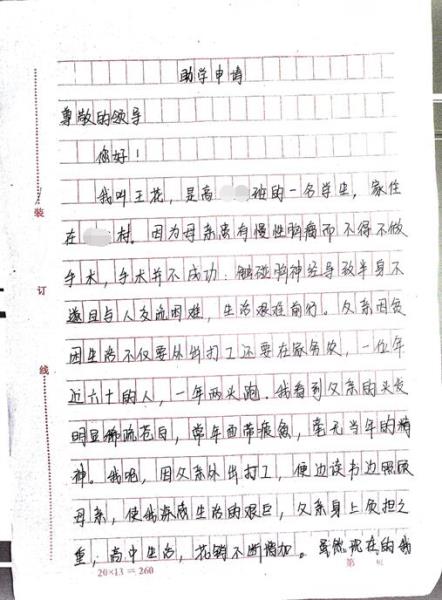 助学申请
尊敬的领导
您好！
我叫王花，是高班的一名学生，家住
在村。因为母亲患有慢性脑瘤而不得不做
手术，手术并不成功：触碰脑神经导致半身不
遂且与人交流困难，生活艰难前行。父亲因贫
困生活不仅要外出打工还要在家务农，一位年
近六十的人，一年两头跑。我看到父亲的头发
明显稀疏苍白，常年面带疲惫，毫无当年的精
神。我呢，因父亲外出打工，便边读书边照顾
母亲，使我深感生活的艰巨，父亲身上负担之
重，高中生活，花销不断增加。虽然现在的我
装
订
线
20×13＝260
第 页